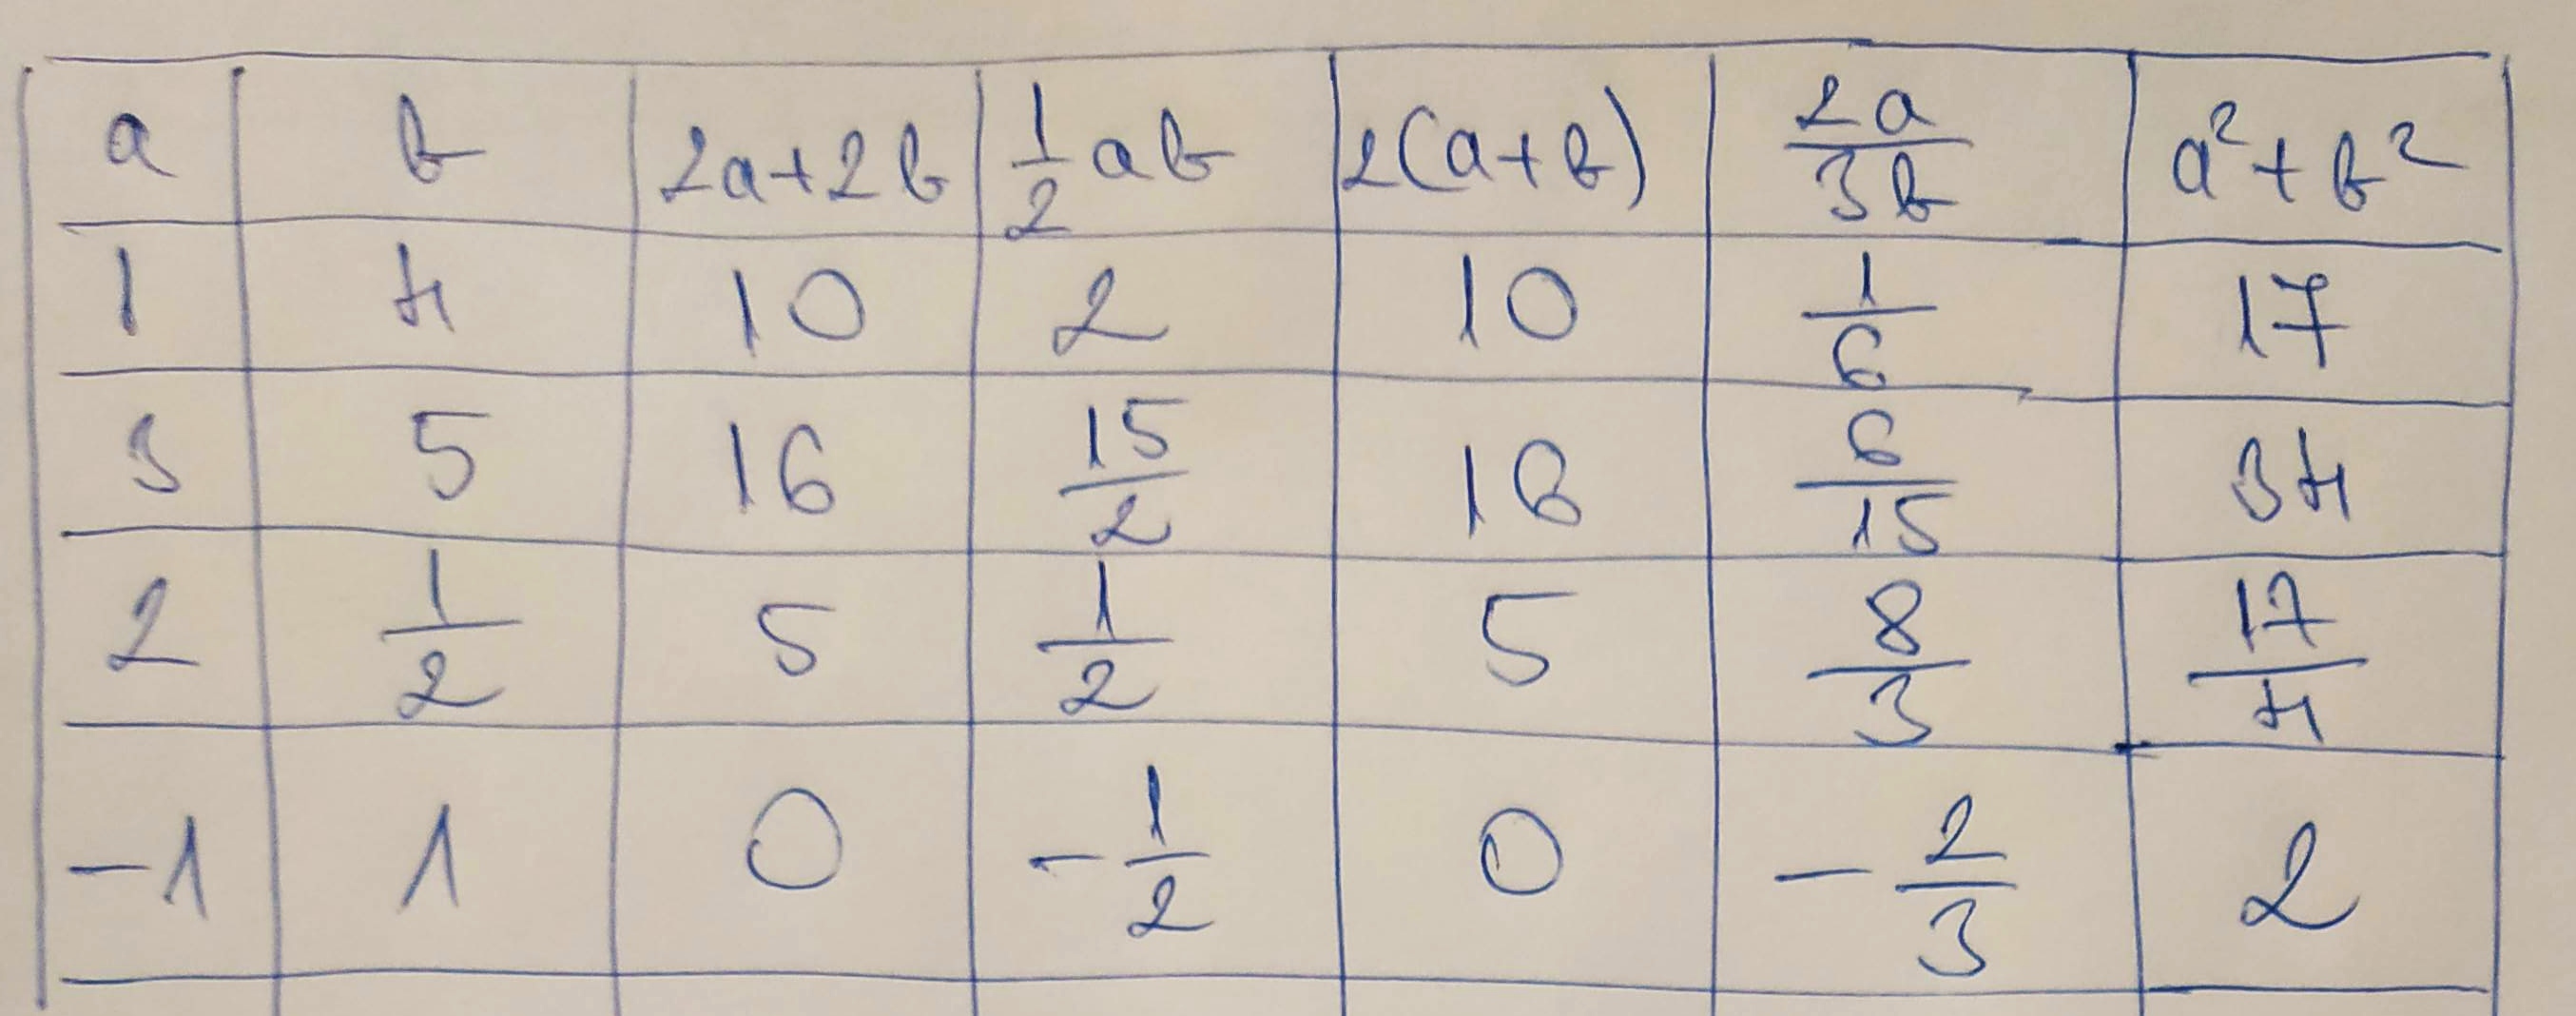 a b 2a+2b 1/2 ab 2(a+b) 2a/3b a²+b²
1 4 10 2 10 1/6 17
3 5 16 15/2 16 6/15 34
2 1/2 5 1/2 5 8/3 17/4
-1 1 0 -1/2 0 -2/3 2